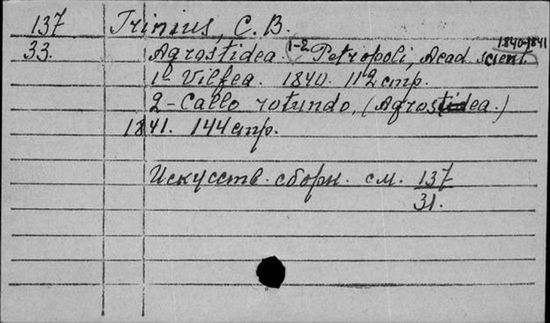 137 Trinius, C. B.
33. Agrostidea. 1-2 Petropoli, Acad. scient. 1840-1841
1. Vilfea. 1840. 112 стр.
2 - Callo rotundo, (Agrostidea.)
1841. 144 стр.
Искусств. сборн. см. 137
31.